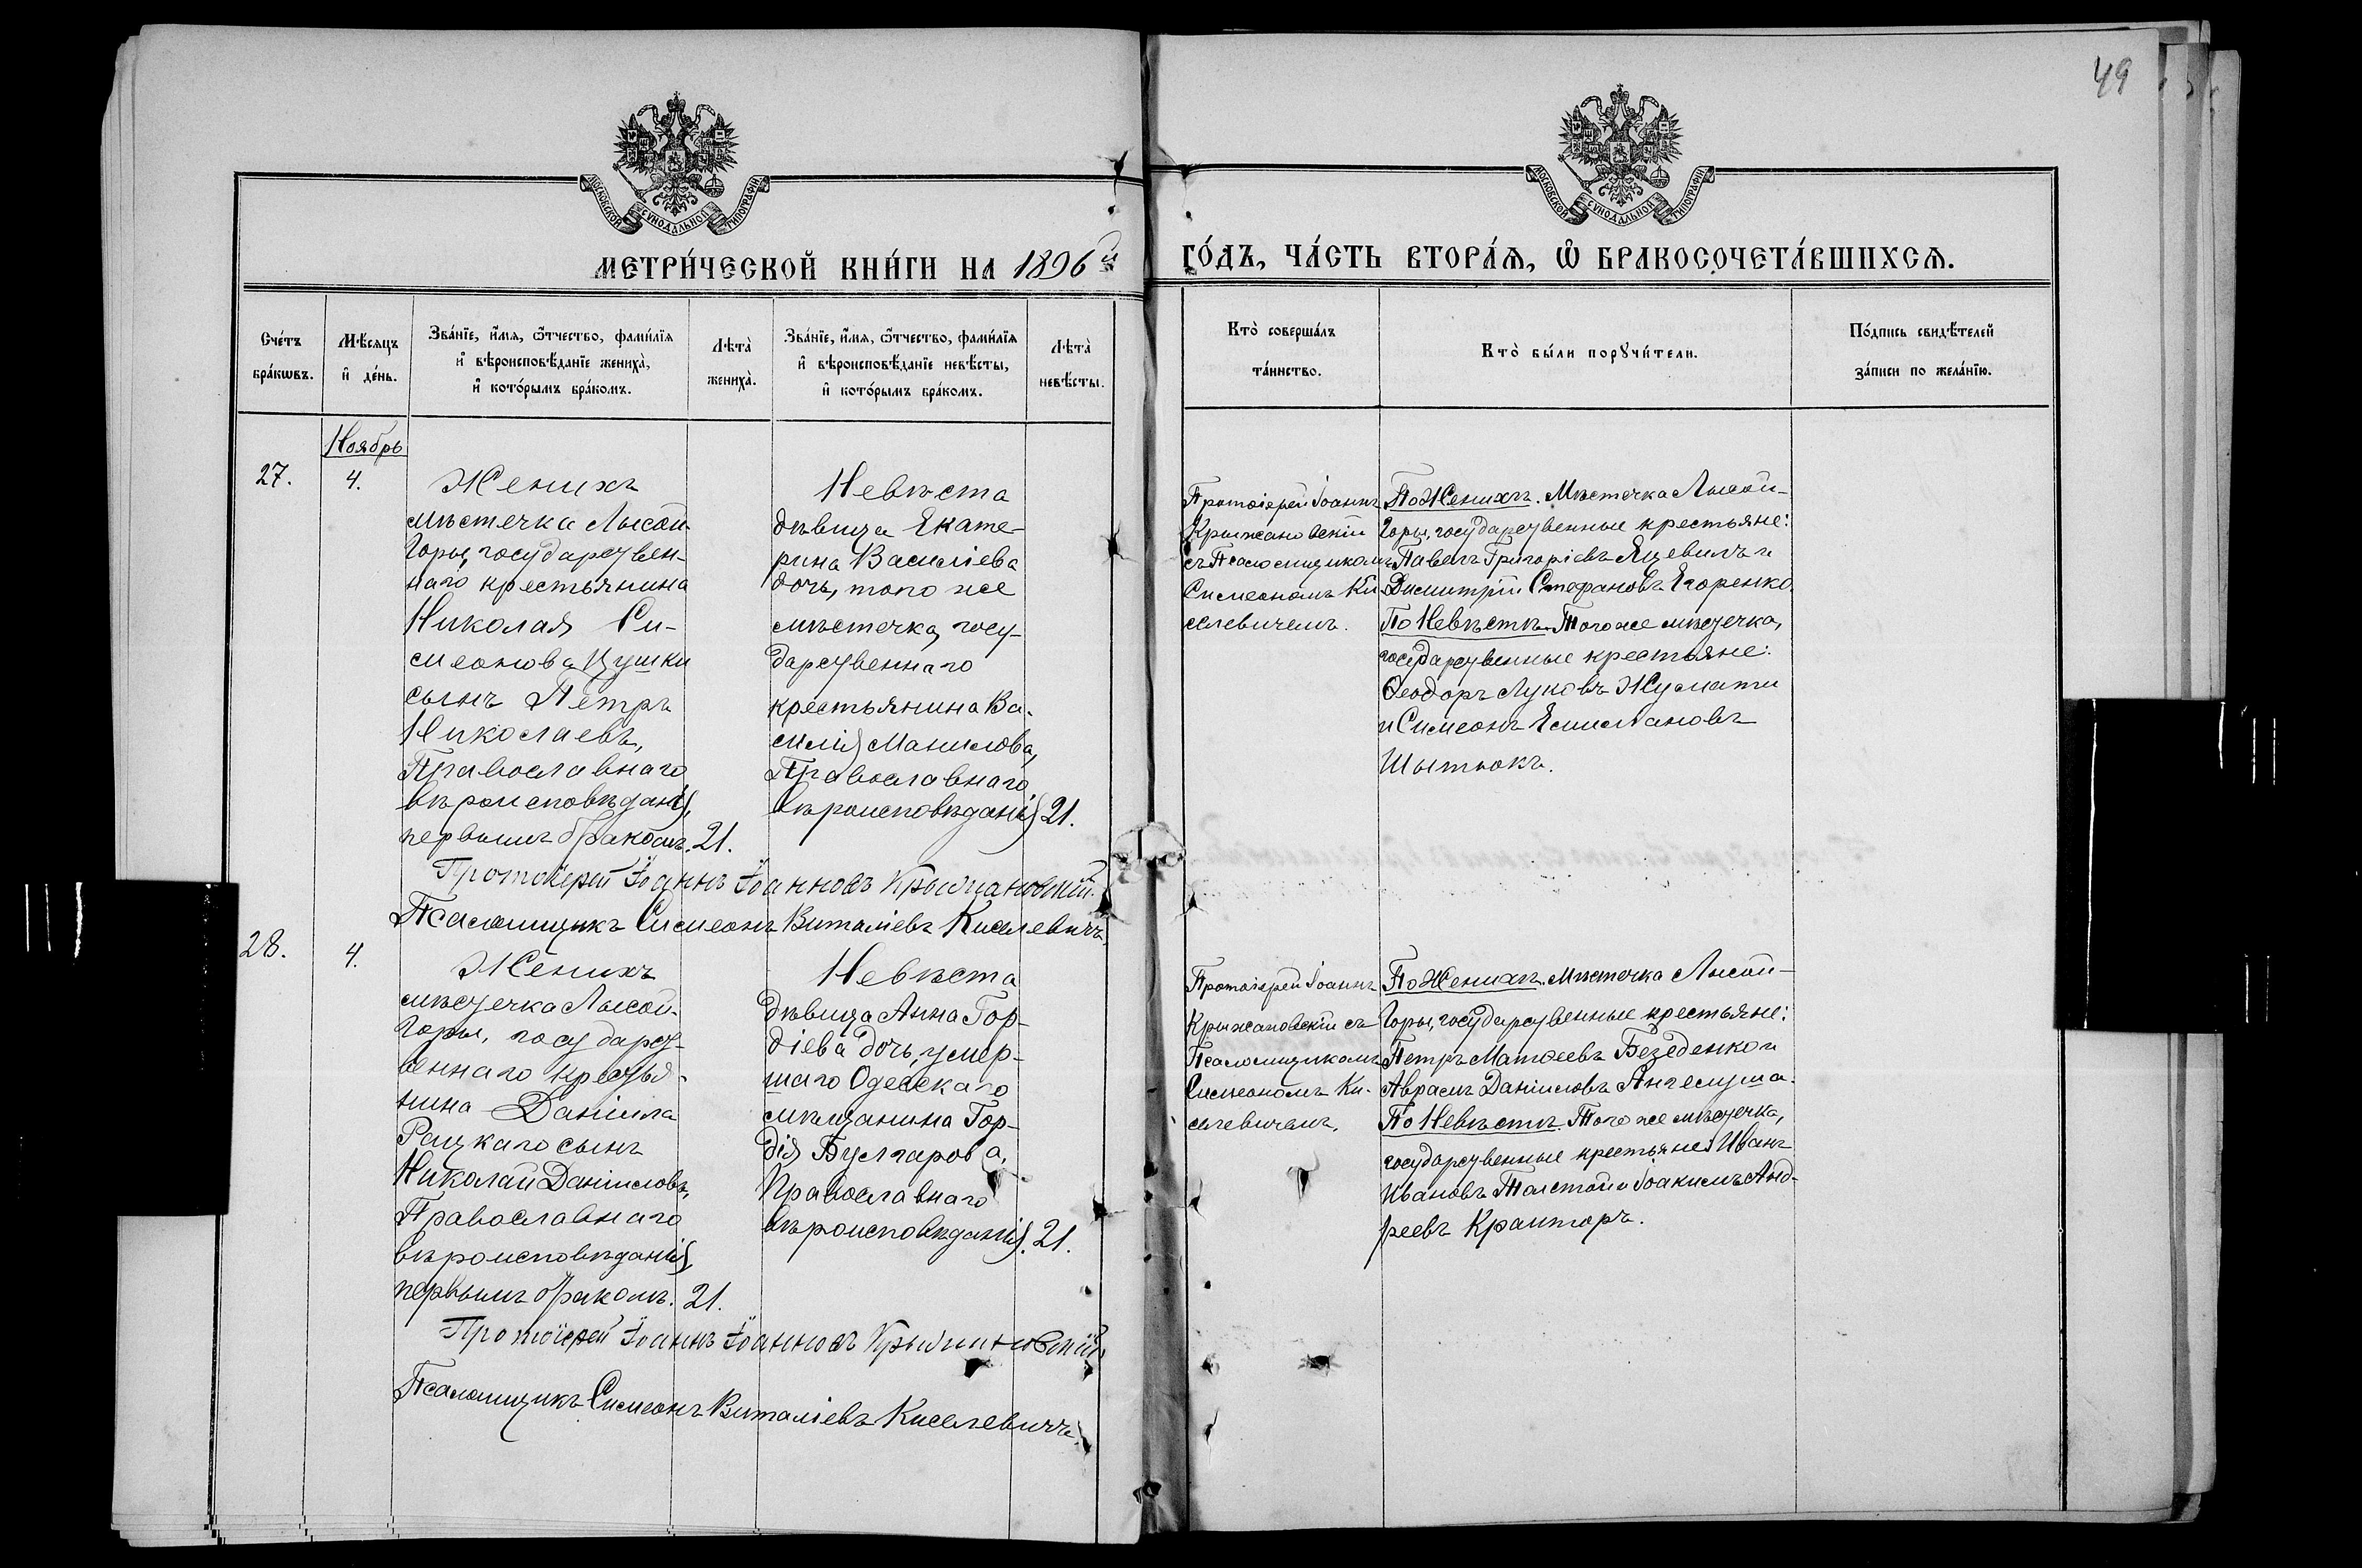 49
МОСКОВСКОЙ СѴНОДАЛЬНОЙ ТИПОГРАФІИ
МОСКОВСКОЙ СѴНОДАЛЬНОЙ ТИПОГРАФІИ
МЕТРИ́ЧЕСКОЙ КНИ́ГИ НА 1896й ГО́ДЪ, ЧА́СТЬ ВТОРА́Ѧ, Ѽ БРАКОСОЧЕТА́ВШИХСѦ.
Сче́тъ
бра́кѡвъ.
Мѣ́сяцъ
и҆ де́нь.
Зва́нїе, и҆́мѧ, ѻ҆́тчество, фами́лїѧ
и҆ вѣроисповѣ́данїе жениха̀,
и҆ кото́рымъ бра́комъ.
Лѣта̀
жениха̀.
Зва́нїе, и҆́мѧ, ѻ҆́тчество, фами́лїѧ
и҆ вѣроисповѣ́данїе невѣ́сты,
и҆ кото́рымъ бра́комъ.
Лѣта̀
невѣ́сты.
Кто̀ соверша́лъ
та́инство.
Кто̀ бы́ли порꙋчи́тели.
По́дпись свидѣ́телей
за́писи по жела́нїю.
Ноябрь
27.
4.
Женихъ
мѣстечка Лысой-
Горы, государствен-
наго крестьянина
Николая Си-
меонова Цушки
сынъ Петръ
Николаевъ,
Православнаго
вѣроисповѣданія,
первымъ бракомъ.
21.
Невѣста
дѣвица Екате-
рина Василіева
дочь, того же
мѣстечка, госу-
дарственнаго
крестьянина Ва-
силія Манилова,
Православнаго
вѣроисповѣданія
21.
Протоіерей Іоаннъ
Крыжановскій
съ Псаломщикомъ
Симеономъ Ки-
селевичемъ.
По Женихѣ. Мѣстечка Лысой-
Горы, государственные крестьяне:
Павелъ Григоріевъ Яцевилъ и
Димитрій Стефановъ Егоренко.
По Невѣстѣ. Того же мѣстечка,
государственные крестьяне:
Ѳеодоръ Луковъ Жумати
и Симеонъ Емиліановъ
Шытюкъ.
Протоіерей Іоаннъ Іоанновъ Крыжановскій.
Псаломщикъ Симеонъ Виталіевъ Киселевичъ.
28.
4.
Женихъ
мѣстечка Лысой-
Горы, государст-
веннаго крестья-
нина Даніила
Рацкаго сынъ
Николай Даніиловъ,
Православнаго
вѣроисповѣданія,
первымъ бракомъ.
21.
Невѣста
дѣвица Анна Гор-
діева дочь, умер-
шаго Одесскаго
мѣщанина Гор-
дія Булгарова,
Православнаго
вѣроисповѣданія.
21.
Протоіерей Іоаннъ
Крыжановскій съ
Псаломщикомъ
Симеономъ Ки-
селевичемъ.
По Женихѣ. Мѣстечка Лысой-
Горы, государственные крестьяне:
Петръ Матѳеевъ Безеденко и
Аврамъ Даніиловъ Ангелуша.
По Невѣстѣ. Того же мѣстечка,
государственные крестьяне: Иванъ
Ивановъ Толстой и Іоакимъ Анд-
реевъ Кранторъ.
Протоіерей Іоаннъ Іоанновъ Крыжановскій
Псаломщикъ Симеонъ Виталіевъ Киселевичъ.